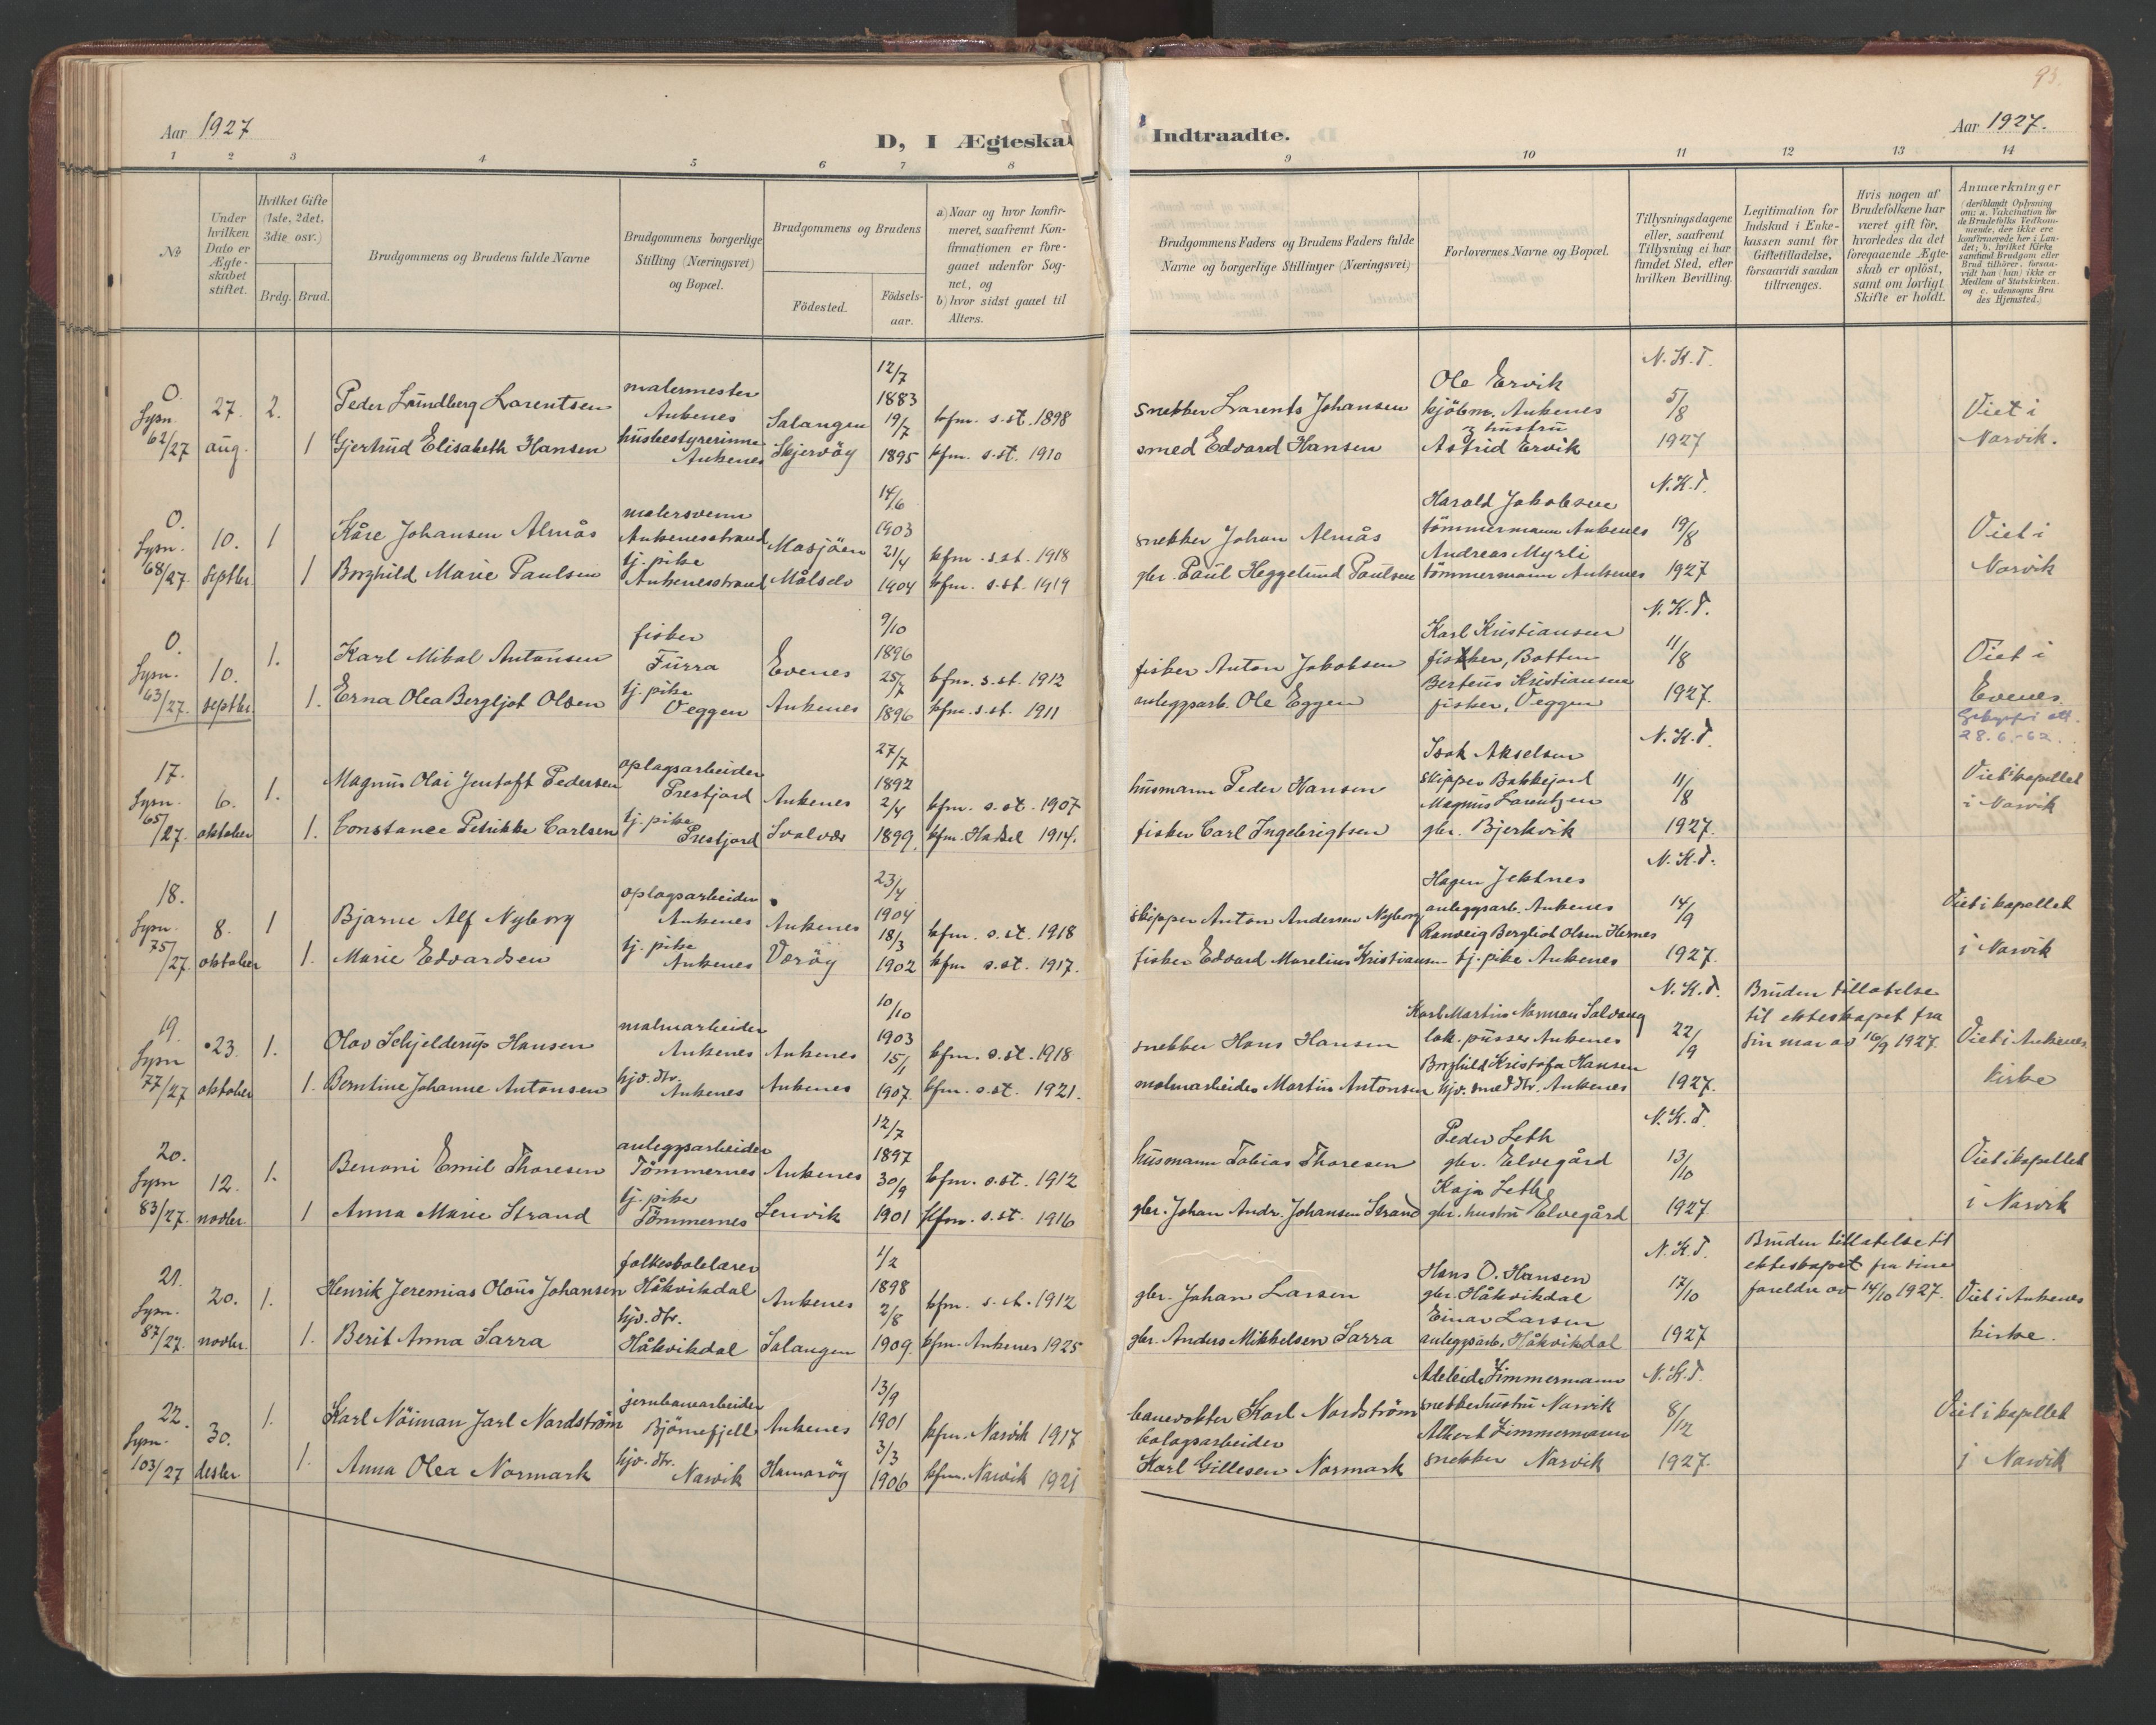 Aar 1927
D, I Ægteska
1 2 3 4 5 6 7 8
№
Under hvilken Dato er Ægteskabet stiftet.
Hvilket Gifte (1ste, 2det, 3die osv.)
Brdg. Brud.
Brudgommens og Brudens fulde Navne
Brudgommens borgerlige Stilling (Næringsvei) og Bopæl.
Brudgommens og Brudens
Födested.
Födselsaar.
a) Naar og hvor konfirmeret, saafremt Konfirmationen er foregaaet udenfor Sognet, og
b) hvor sidst gaaet til Alters.
93.
Indtraadte.
Aar 1927.
9 10 11 12 13 14
Brudgommens Faders og Brudens Faders fulde Navne og borgerlige Stillinger (Næringsvei)
Forlovernes Navne og Bopæl.
Tillysningsdagene eller, saafremt Tillysning ei har fundet Sted, efter hvilken Bevilling.
Legitimation for Indskud i Enkekassen samt for Giftetilladelse, forsaavidt saadan tiltrænges.
Hvis nogen af Brudefolkene har været gift för, hvorledes da det foregaaende Ægteskab er oplöst, samt om lovligt Skifte er holdt.
Anmærkninger (deriblandt Oplysning om: a. Vakcination for de Brudefolks Vedkommende, der ikke ere konfirmerede her i Landet; b. hvilket Kirkesamfund Brudgom eller Brud tilhörer, forsaavidt han (hun) ikke er Medlem af Statskirken. og c. udensogns Brudes Hjemsted.)
0. Lysn. 62/27 27. aug. 2. Peder Lundberg Lorentsen malermester Ankenes Salangen 12/7 1883 kfm. s. st. 1898
1 Gjertrud Elisabeth Hansen husbestyrerinne Ankenes Skjervöy 19/7 1895 kfm. s. st. 1910
snekker Larents Johansen Ole Ervik kjöbm. Ankenes N.K.T. 5/8 1927 Viet i Narvik.
smed Edvard Hansen & hustru Astrid Ervik
0. Lysn. 68/27. 10. septbr. 1 Kåre Johansen Almås malersvenn Ankenesstrand Mosjöen 14/6 1903 kfm. s. st. 1918
1 Borghild Marie Paulsen tj. pike Ankenesstrand Målselv 21/4 1904 kfm. s. st. 1919
snekker Johan Almås Harald Jakobsen tömmermann Ankenes N.K.T. 19/8 1927 Viet i Narvik
gbr. Paul Heggelund Paulsen Andreas Myrli tömmermann Ankenes
0. Lysn. 63/27. 10. septbr. 1. Karl Mikal Antonsen fisker Furra Evenes 9/10 1896 kfm. s. st. 1912
1. Erna Olea Bergljot Olsen tj. pike Veggen Ankenes 25/7 1896 kfm. s. st. 1911
fisker Anton Jakobsen Karl Kristiansen fisker, Botten N.K.T. 11/8 1927. Viet i Evenes.
anleggsarb. Ole Eggen Berteus Kristiansen fisker, Veggen
28.6.-62.
17. Lysn. 65/27. 6. oktober 1. Magnus Olai Jentoft Pedersen oplagsarbeider Prestjord Ankenes 27/7 1892 kfm. s. st. 1907
1. Constance Petrikke Carlsen tj. pike Prestjord Svolvær 2/4 1899. kfm. Hadsel 1914.
husmann Peder Hansen Isak Akselsen skipper Bakkejord N.K.T. 11/8 1927. Viet i kapellet i Narvik
fisker Carl Ingebrigtsen Magnus Lauritzen gbr. Bjerkvik
18. Lysn. 75/27. 8. oktober 1 Bjarne Alf Nyborg oplagsarbeider Ankenes Ankenes 23/4 1904 kfm. s. st. 1918
1. Marie Edvardsen tj. pike Ankenes Væröy 18/3 1902 kfm s. st. 1917.
skipper Anton Andersen Nyborg Hagen Jektnes anleggsarb. Ankenes N.K.T. 14/9 1927. Viet i kapellet i Narvik
fisker Edvard Marelius Kristiansen Ranveig Bergliot Olsen Hernes tj. pike Ankenes
19. Lysn 77/27 23. oktober 1. Olav Schjelderup Hansen malmarbeider Ankenes Ankenes 10/10 1903 kfm. s. st. 1918
1. Berntine Johanne Antonsen hjv. dtr. Ankenes Ankenes 15/1 1907. kfm. s. st. 1921.
snekker Hans Hansen Karl Martin Norman Solvang lok. pusser Ankenes N.K.T. 22/9 1927. Bruden tillatelse til ekteskapet fra sin mor av 16/9 1927. Viet i Ankenes kirke
malmarbeider Martin Antonsen Borghild Kristofa Hansen hjv. smed dtr. Ankenes
20. Lysn 83/27. 12. novbr. 1. Benoni Emil Thoresen anleggsarbeider Tömmernes Ankenes 12/7 1897 kfm. s. st. 1912
1 Anna Marie Strand tj. pike Tömmernes Lenvik 30/9 1901 kfm. s. st. 1916
husmann Tobias Thoresen Peder Leth gbr. Elvegård N.K.T. 13/10 1927. Viet i kapellet i Narvik
gbr. Johan Andr. Johansen Strand Kaja Leth gbr. hustru Elvegård
21. Lysn. 87/27. 20. novbr. 1. Henrik Jeremias Olaus Johansen folkeskolelærer Håkvikdal Ankenes 1/2 1898 kfm. s. st. 1912
1. Berit Anna Sarra hjv. dtr. Håkvikdal Salangen 2/8 1909. kfm. Ankenes 1925
gbr. Johan Larsen Hans O. Hansen gbr. Håkvikdal N.K.T. 17/10 1927 Bruden tillatelse til ekteskapet fra sine foreldre av 14/10 1927. Viet i Ankenes kirke.
gbr. Anders Mikkelsen Sarra Einar Larsen anleggsarb. Håkvikdal
22. Lysn. 103/27 30. desbr 1. Karl Nöiman Jarl Nordström jernbanearbeider Björnefjell Ankenes 13/9 1901 kfm. Narvik 1917
1. Anna Olea Normark hjv. dtr. Narvik Hamaröy 3/3 1906 kfm. Narvik 1921
banevokter Karl Nordström Adeleide Zimmermann snekkerhustru Narvik N.K.T. 8/12 1927. Viet i kapellet i Narvik
bolagsarbeider Karl Gillesen Normark Albert Zimmermann snekker Narvik